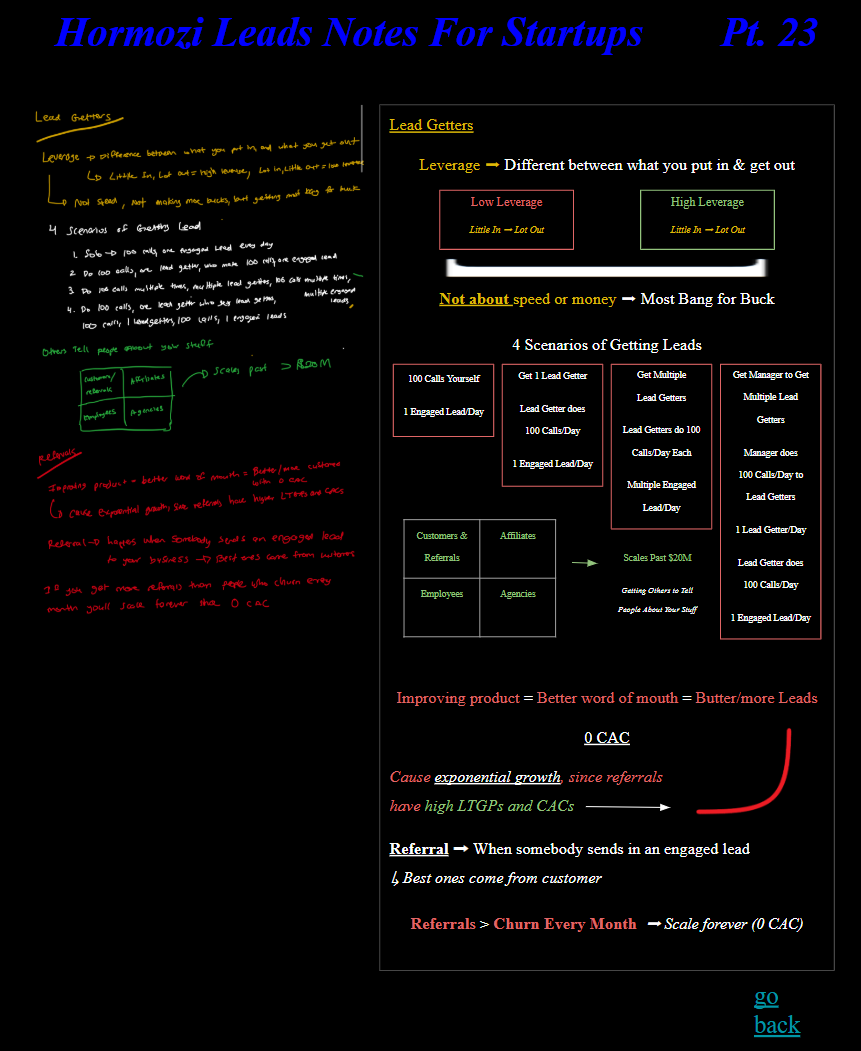 Hormozi Leads Notes For Startups Pt. 23
Lead Getters
Leverage → Difference between what you put in, and what you get out
↳ Little In, Lot out = high leverage, Lot in, Little out = low leverage
↳ Not speed, not making more bucks, but getting most bang for buck
4 Scenarios of Getting Lead
1. Job → 100 calls, one engaged lead every day
2. Do 100 calls, one lead getter, who make 100 calls, one engaged lead
3. Do 100 calls multiple times, multiple lead getters, 100 calls multiple times, multiple engaged leads
4. Do 100 calls, one lead getter who gets lead getters,
100 calls, 1 lead getters, 100 calls, 1 engaged leads
Others Tell people about your stuff
Customers/ referrals
Affiliates
Employees
Agencies
→ Scales past >
Referrals
Improving product = better word of mouth = Better/more customers
with 0 CAC
↳ Cause exponential growth, since referrals have higher LTGPs and CACs
Referral → Happens when somebody sends an engaged lead
to your business → Best ones come from customers
If you get more referrals than people who churn every
month you'll scale forever 0 CAC
Lead Getters
Leverage → Different between what you put in & get out
Low Leverage
Little In → Lot Out
High Leverage
Little In → Lot Out
Not about speed or money → Most Bang for Buck
4 Scenarios of Getting Leads
100 Calls Yourself
1 Engaged Lead/Day
Get 1 Lead Getter
Lead Getter does
100 Calls/Day
1 Engaged Lead/Day
Get Multiple
Lead Getters
Lead Getters do 100
Calls/Day Each
Multiple Engaged
Lead/Day
Get Manager to Get
Multiple Lead
Getters
Manager does
100 Calls/Day to
Lead Getters
1 Lead Getter/Day
Lead Getter does
100 Calls/Day
1 Engaged Lead/Day
Customers &
Referrals
Affiliates
Employees
Agencies
Scales Past $20M
Getting Others to Tell
People About Your Stuff
Improving product = Better word of mouth = Butter/more Leads
0 CAC
Cause exponential growth, since referrals
have high LTGPs and CACs
Referral → When somebody sends in an engaged lead
↳ Best ones come from customer
Referrals > Churn Every Month → Scale forever (0 CAC)
go
back